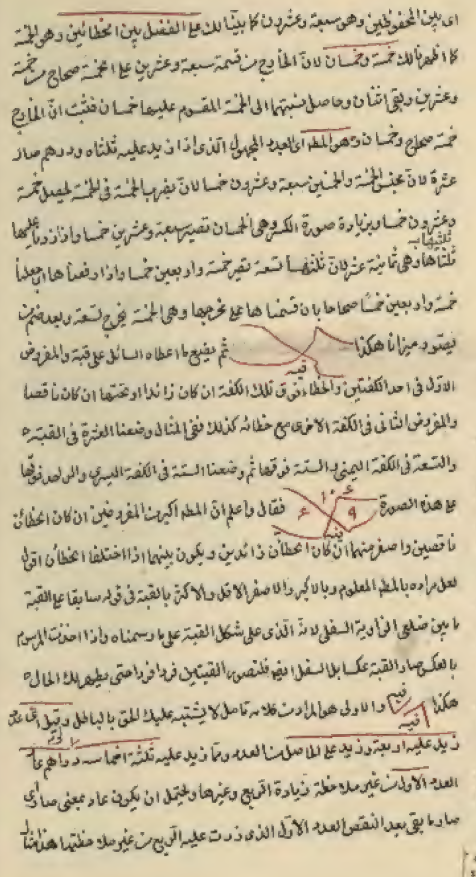 اى بين المحفوظين وهو سبعة وعشرون كما بيّنا لك على الفضل بين الخطائين وهو الخمسة
كما اظهرنا لك خمسة وخمسان لانّ الخارج من قسمة سبعة وعشرين على الخمسة خمسة صحاح من خمسة
وعشرين وبقى اثنان وحاصل نسبتهما الى الخمسة المقسوم عليها خمسان فثبت انّ الخارج
خمسة صحاح وخمسان وهو المط اى العدد المجهول الّذى اذا زيد عليه ثلثاه ودرهم صار
عشرة لانّ مجنّس الخمسة والخمسين سبعة وعشرون خمسا لانّ يضرب الخمسة فى الخمسة ليحصل خمسة
وعشرون خمسا وبزيادة صورة الكسر وهى الخمسان تصير سبعة وعشرين خمسا واذا زدنا عليها
ثلثاها وهى ثمانية عشر لانّ ثلثها تسعة تصير خمسة واربعين خمسا واذا رفعناها اى جعلنا
خمسة واربعين خمسا صحاحا بان قسمناها على مخرجها وهى الخمسة يخرج تسعة وبعد ضم
فيصوّر ميزانا هكذا ثم يضع ما اعطاه السائل على قبة والمفروض
قبه
الاوّل فى احد الكفتين والخطاء فوق تلك الكفة ان كان زائدا او تحتها ان كان ناقصا
والمفروض الثانى فى الكفة الاخرى مع خطائه كذلك ففى المثال وضعنا العشرة فى القبة
والتسعة فى الكفة اليمنى والستة فوقها ثم وضعنا الستة فى الكفة اليسرى والواحد فوقها
على هذه الصورة ٩ ١٠ فقال واعلم انّ المط اكبر من المفروضين ان كان الخطائن
ناقصين واصغر منهما ان كان الخطأن زائدين ويكون بينهما اذا اختلفا الخطأن اقول
لعل مراده بالمط المعلوم وبالاكبر والاصغر الاقل والاكثر بالقبة فى قوله سابقا على القبة
ما بين ضلعى الزاوية السفلى لانّه الّذى على شكل القبة على ما رسمناه واذا اخذت المرسوم
بالعكس صار القبة عكسا بل السفل فلتصور القبتين فردا فردا حتى يظهر لك الحال
هكذا قبه والاولى هو المراد من كلامه تأمل لا يشتبه عليك الحق بالباطل وقيل
زيد عليه اربعة وزيد على الحاصل من العدد وما زيد عليه ثلثة اخماسه ودراهم
العدد الاول من غير ملاحظة زيادة الربع وغيرها ويحتمل ان يكون عاد بمعنى صار اى
صار ما بقى بعد النقص العدد الاوّل الذى زدت عليه الربع من غير ملاحظتها هذا مثال